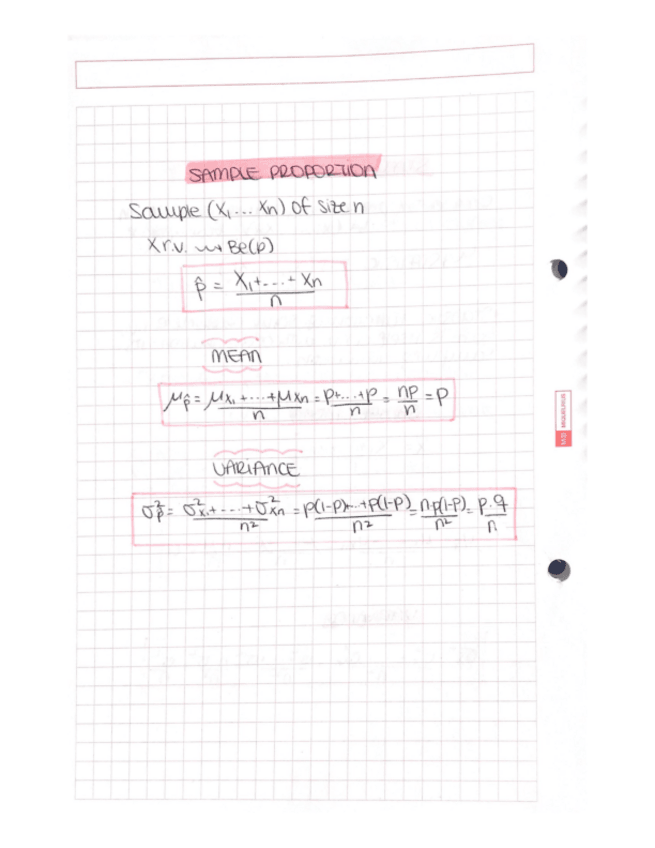 SAMPLE PROPORTION
Sample (X₁ ... Xn) of size n
X r.v. ⇝ Be(p)
p̂ = (X₁+...+Xn)/n
MEAN
μp̂ = (μx₁+...+μxn)/n = (p+...+p)/n = np/n = p
VARIANCE
σ²p̂ = (σ²x₁+...+σ²xn)/n² = (p(1-p)+...+p(1-p))/n² = n·p(1-p)/n² = p·q/n
MIQUELRIUS